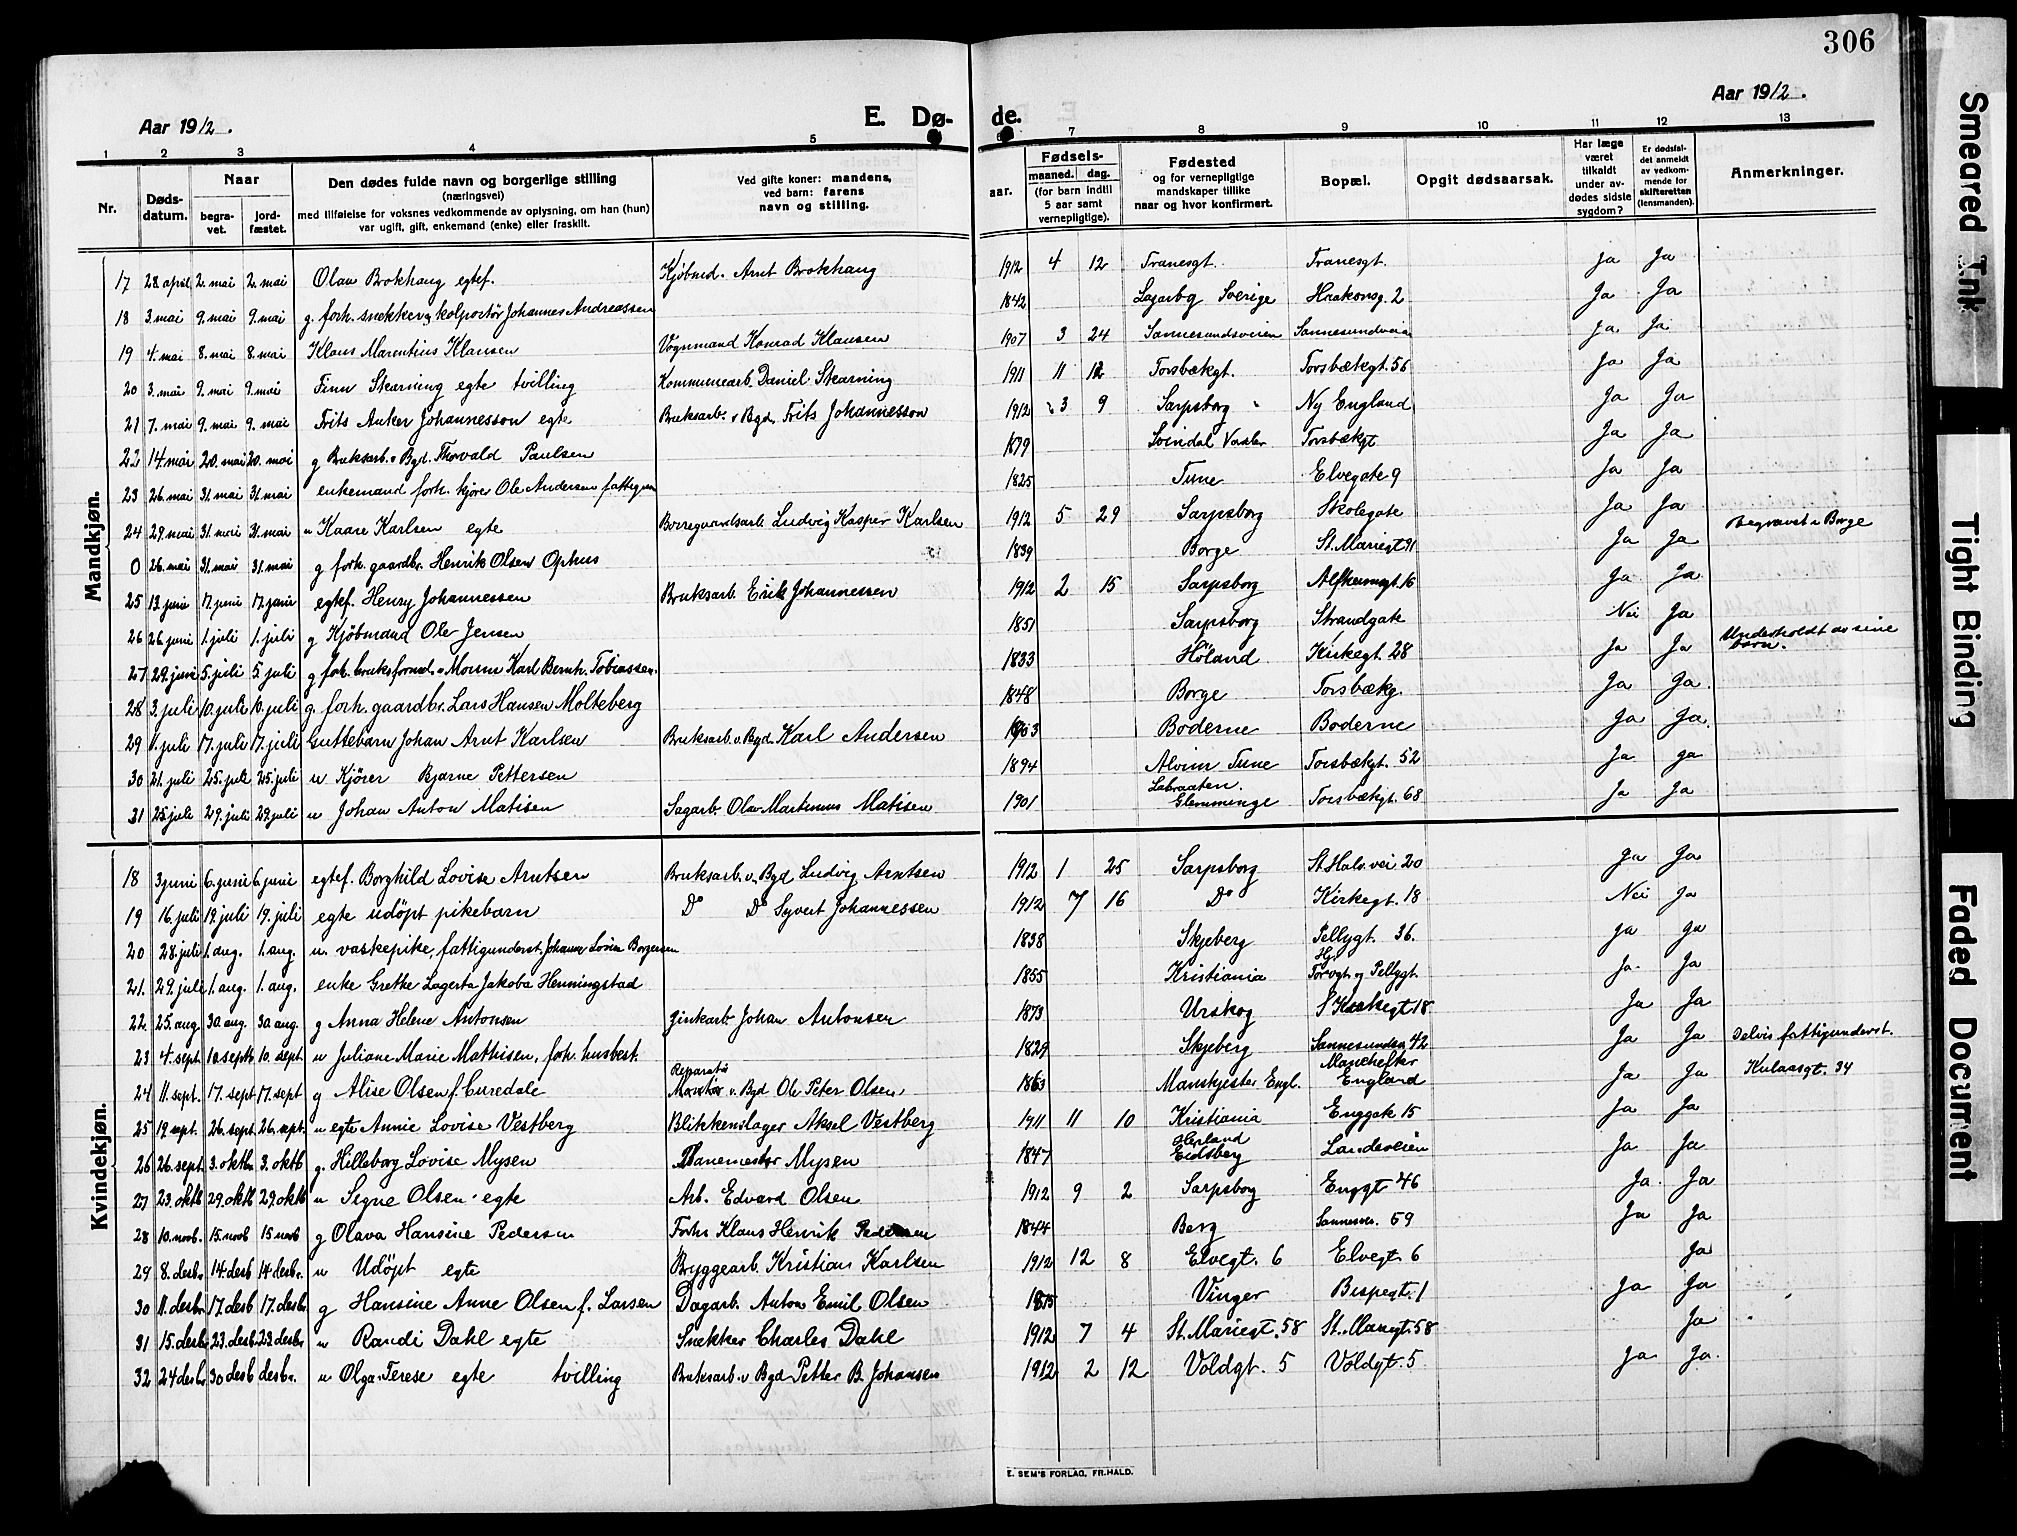 306
Aar 1912. E. Dø- de. Aar 1912.
1 2 3 4 5 6 7 8 9 10 11 12 13
Nr.
Døds-
datum.
Naar
begra-
vet.
jord-
fæstet.
Den dødes fulde navn og borgerlige stilling
(næringsvei)
med tilføielse for voksnes vedkommende av oplysning, om han (hun)
var ugift, gift, enkemand (enke) eller fraskilt.
Ved gifte koner: mandens,
ved barn: farens
navn og stilling.
aar.
Fødsels-
maaned. dag.
(for barn indtil
5 aar samt
vernepligtige).
Fødested
og for vernepligtige
mandskaper tillike
naar og hvor konfirmert.
Bopæl.
Opgit dødsaarsak.
Har læge
været
tilkaldt
under av-
dødes sidste
sygdom?
Er dødsfal-
det anmeldt
av vedkom-
mende for
skifteretten
(lensmanden).
Anmerkninger.
Mandkjøn.
17 28 april 2. mai 2. mai Olav Brokhaug egtef. Kjøbmd. Arnt Brokhaug 1912 4 12 Tranesgt. Tranesgt. Ja Ja
18 3. mai 9. mai 9. mai g. forh. snekker og kolportør Johannes Andreassen 1842 Sverige Haakonsg. 2 Ja Ja
19 4. mai 8. mai 8. mai Klaus Marentius Klausen Vognmand Konrad Klausen 1907 3 24 Sannesundsveien Sannesundsveien Ja Ja
20 3. mai 9. mai 9. mai Finn Skarning egte tvilling Kommunearb. Daniel Skarning 1911 11 12 Torsbækgt. Torsbækgt. 56 Ja Ja
21 7. mai 9. mai 9. mai Frits Anker Johannesson egte Bruksarb. v Bgd. Frits Johannesson 1912 3 9 Sarpsborg Ny England Ja Ja
22 14. mai 20. mai 20. mai g Bruksarb. v Bgd. Thorvald Paulsen 1879 Svindal Vaaler Torsbækgt Ja Ja
23 26. mai 31. mai 31. mai enkemand forh. kjører Ole Andersen fattigun 1825 Tune Elvegate 9 Ja Ja
24 29. mai 31. mai 31. mai u Kaare Karlsen egte Borregaardsarb. Ludvig Kasper Karlsen 1912 5 29 Sarpsborg Skolegate Ja Ja
0 26. mai 31. mai 31. mai g forh. gaardbr. Henrik Olsen Ophus 1839 Borge St. Mariegt 91 Ja Ja Begravet i Borge
25 13. juni 17. juni 17. juni egtef. Henry Johannessen Bruksarb. Erik Johannessen 1912 2 15 Sarpsborg Alfheimsgt. 16 Ja Ja
26 26. juni 1. juli 1. juli g Kjøbmand Ole Jensen 1851 Sarpsborg Strandgate Nei Ja
27 29. juni 5. juli 5 juli g forh. bruksformd. v Mosm Karl Bernh. Tobiassen 1833 Høland Kirkegt. 28 Ja Ja Underholdt av sine
barn.
28 3. juli 10. juli 10. juli g. forh. gaardbr. Lars Hansen Molteberg 1848 Borge Torsbækg. Ja Ja
29 11. juli 17. juli 17. juli Guttebarn Johan Arnt Karlsen Bruksarb. v. Bgd. Karl Andersen 1903 Boderne Boderne Ja Ja
30 21. juli 25. juli 25. juli u Kjører Bjarne Pettersen 1894 Alvim Tune Torsbækgt. 52 Ja Ja
31 25. juli 29. juli 29. juli u Johan Anton Matisen Sagarb. Olav Martinius Matisen 1901 Labraaten.
Glemminge Torsbækgt. 68 Ja Ja
Kvindekjøn.
18 3 juni 6. juni 6. juni egtef. Borghild Lovise Arntsen Bruksarb. v. Bgd Ludvig Arntsen 1912 1 25 Sarpsborg St. Halv. vei 20 Ja Ja
19 16. juli 19. juli 19. juli egte udøpt pikebarn Do Do Syvert Johannessen 1912 7 16 Do Kirkegt. 18 Nei Ja
20 28. juli 1. aug. 1. aug. u. vaskepike, fattigunderst. Johanne Lovise Borgersen 1838 Skjeberg Pellygt. 36. Ja Ja
21. 29. juli 1. aug. 1. aug. enke Grethe Lagerta Jakoba Henningstad 1855 Kristiania Hj.
Torvgt. og Pellygt. Ja Ja
22 25. aug 30. aug. 30. aug. g Anna Helene Antonsen Zinkarb. Johan Antonsen 1873 Urskog Kirkegt 18. Ja Ja
23 4. sept. 10. septb 10. sept u Juliane Marie Mathisen, forh. husbest. 1829 Skjeberg Sannesundsv. 42 Ja Ja Delvis fattigunderst.
24 11. sept. 17. sept 17. sept g Alise Olsen f. Curedale Reparatø
Montør v. Bgd Ole Peter Olsen 1863 Manskjester Engl. Manchester
England Ja Ja Kulaasgt. 34
25 19 sept. 26. sept 26. sept. u egte Annie Lovise Vestberg Blikkenslager Aksel Vestberg 1911 11 10 Kristiania Enggate 15 Ja Ja
26 26. sept 3. oktb 3. oktb g. Hilleborg Lovise Mysen Banemester Mysen 1847 Herland
Eidsberg Landeveien Ja Ja
27 23. oktb 29. oktb 29. oktb u Signe Olsen egte Arb. Edvard Olsen 1912 9 2 Sarpsborg Enggt 46 Ja Ja
28 10. novb. 15. novb 15 novb g Olava Hansine Pedersen Forh. Klaus Henrik Pedersen 1844 Berg Sannesv. 59 Ja Ja
29 8. desb. 14. desb 14 desb. u Udøpt egte Bryggearb. Kristian Karlsen 1912 12 8 Elvegt. 6 Elvegt. 6 Ja
30 11. desbr 17. desb 17. desbr g Hansine Anne Olsen f. Larsen Dagarb. Anton Emil Olsen 1875 Vinger Bispegt. 1 Ja Ja
31 15. desbr 23. desbr 23. desbr u Randi Dahl egte Snekker Charles Dahl 1912 7 4 St. Mariegt. 58 St. Mariegt. 58 Ja
32 24 desb. 30 desb desbr. u Olga Terese egte tvilling Bruksarb. v Bgd Petter B. Johansen 1912 2 12 Voldgt. 5 Voldgt. 5 Ja Ja
E. SEM'S FORLAG, FR.HALD.
Smeared Ink
Tight Binding
Faded Document